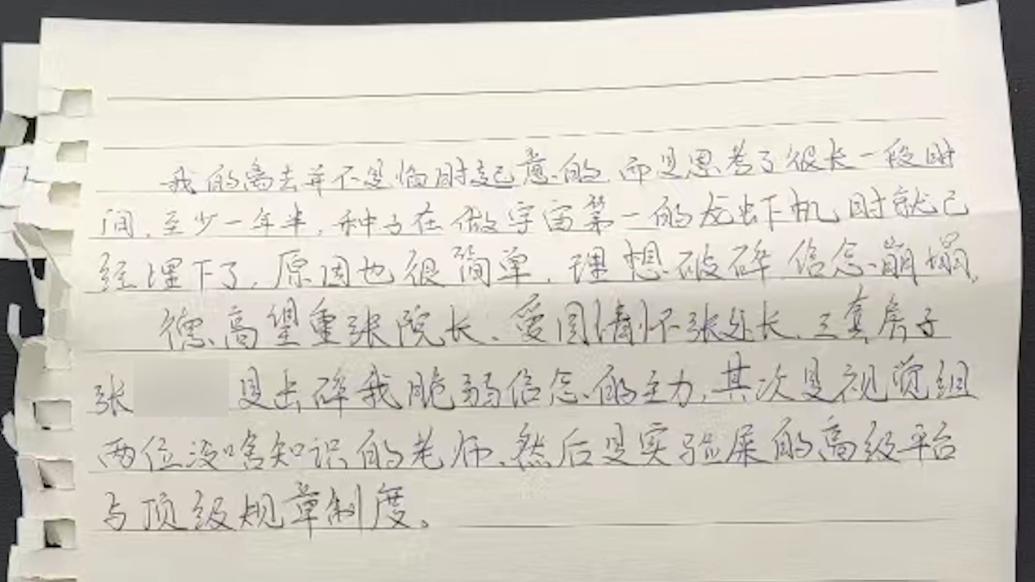 我的离去并不是临时起意的 而是思考了很长一段时
间，至少一年半，种子在做宇宙第一的龙虾机时就已
经埋下了，原因也很简单，理想破碎 信念崩塌，
德高望重张院长、爱国情怀张处长、三套房子
张 是击碎我脆弱信念的主力，其次是视觉组
两位没啥知识的老师，然后是实验屎的高级平台
与顶级规章制度。